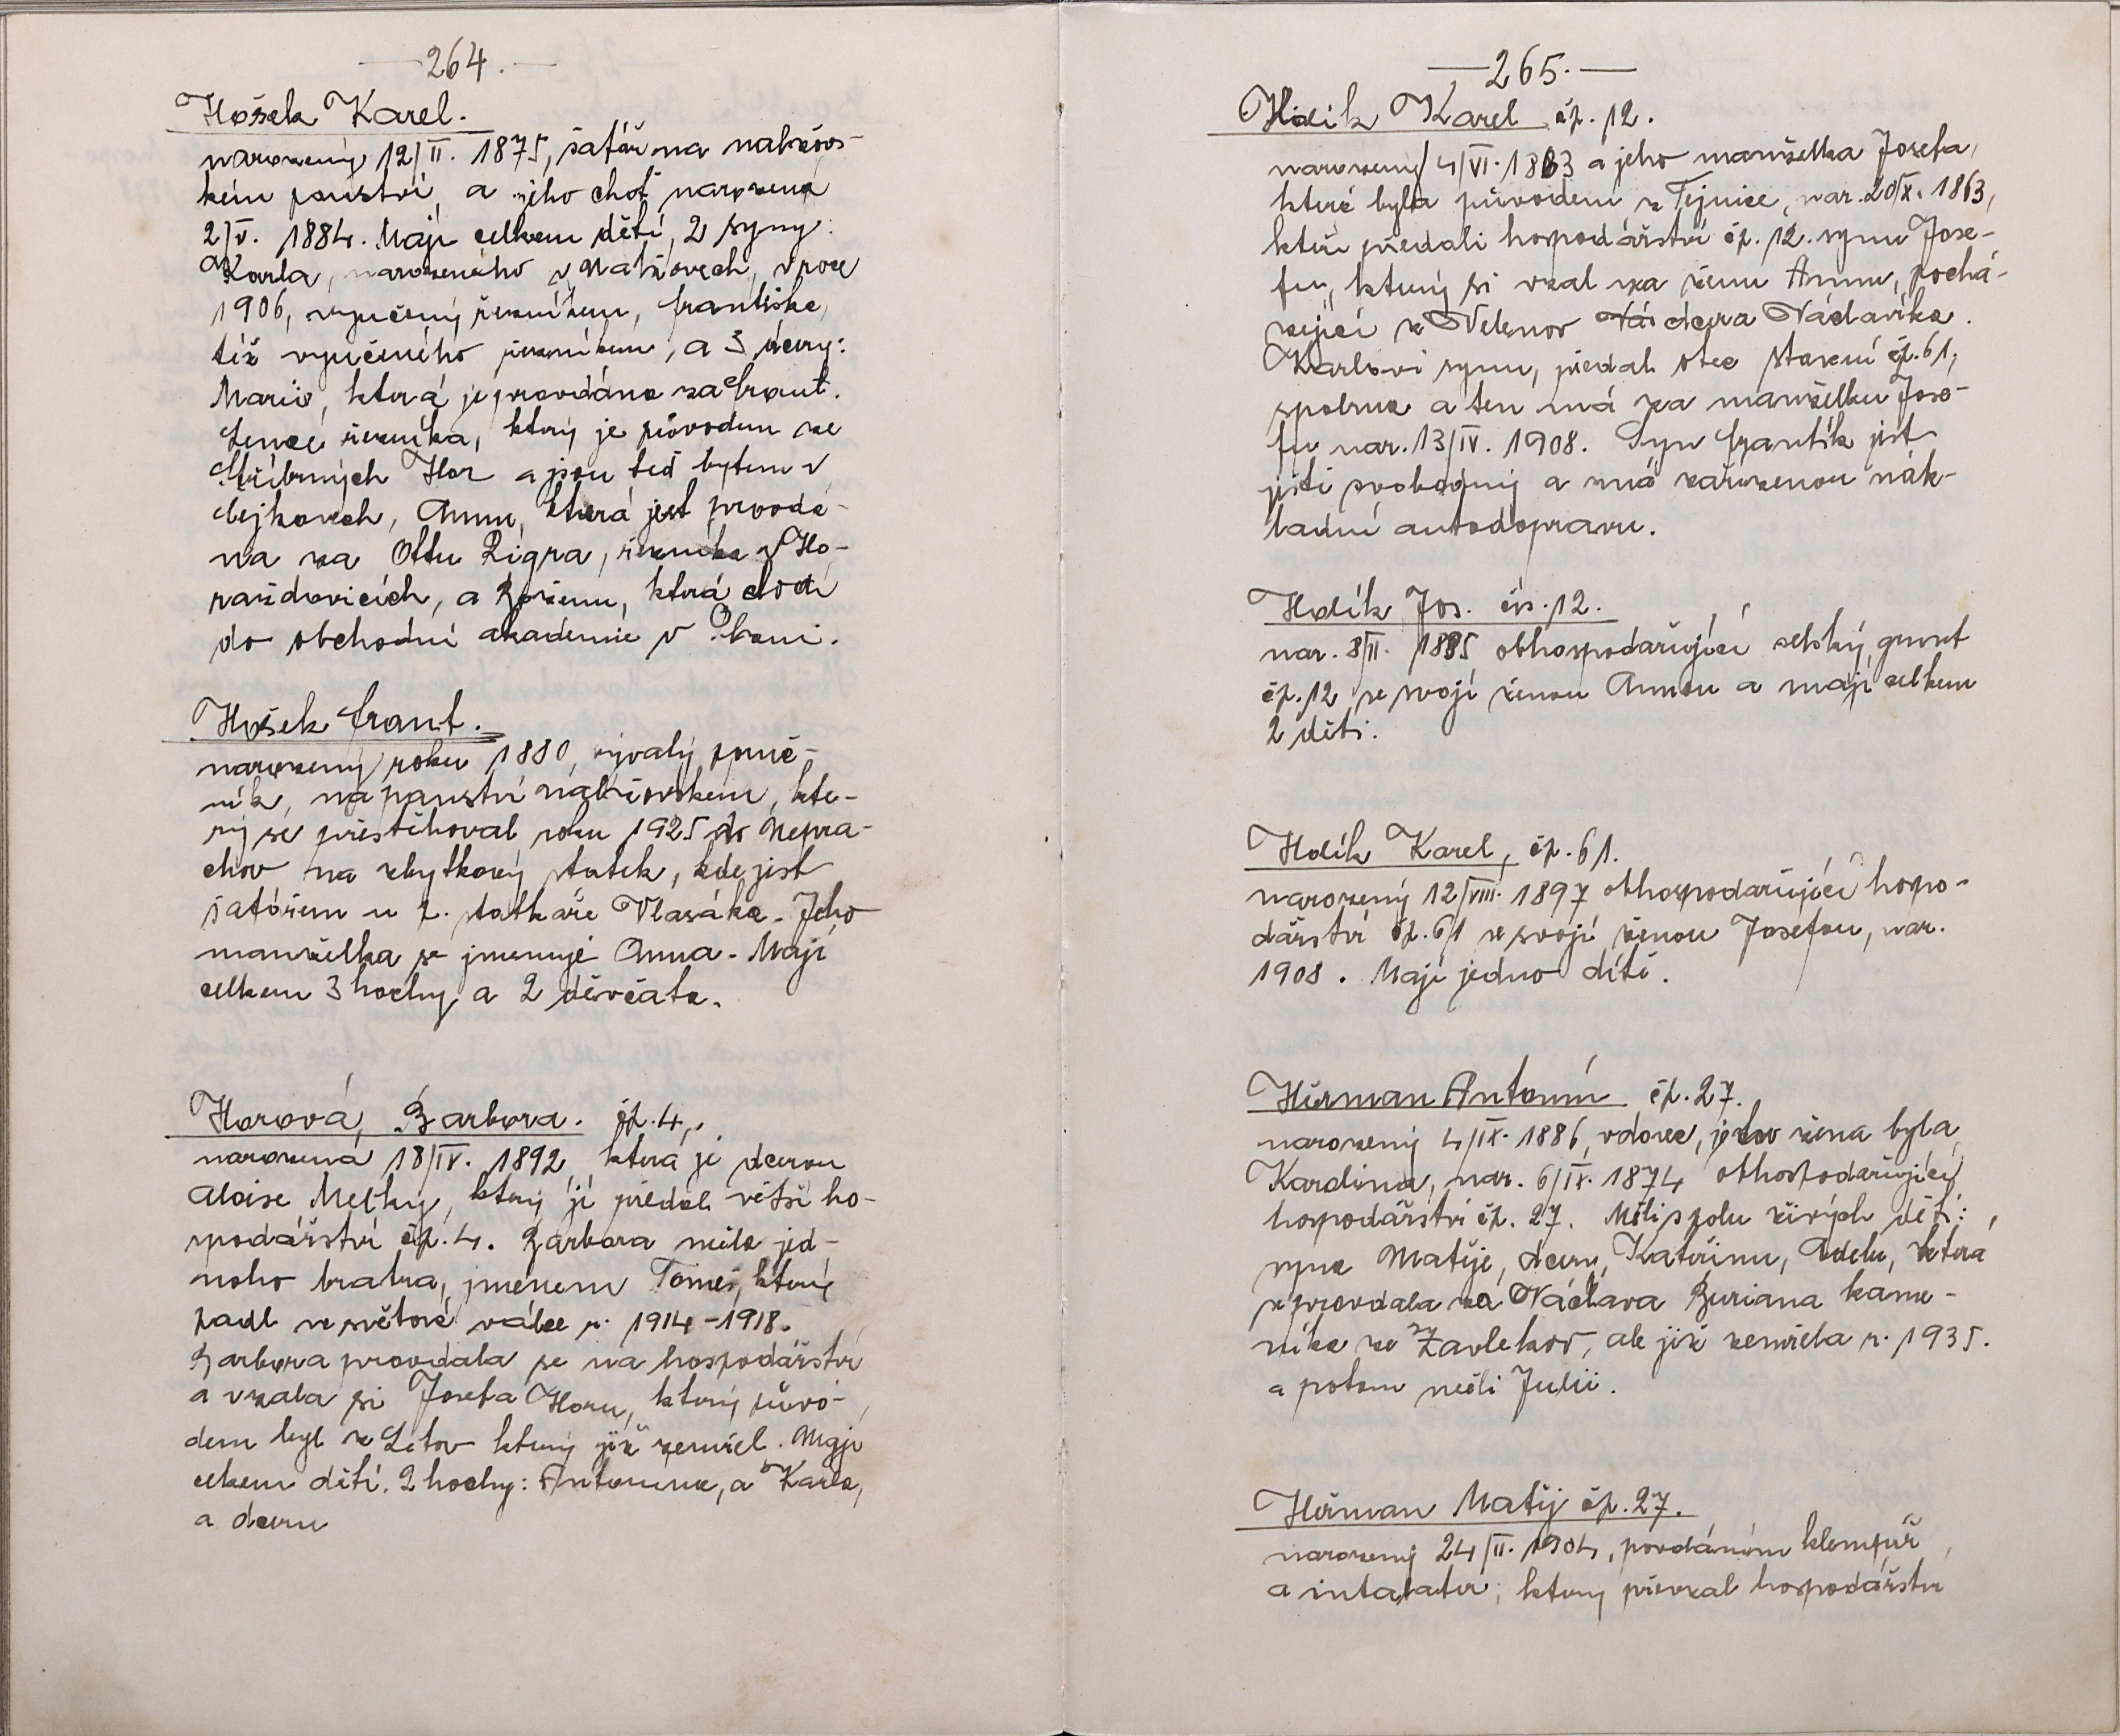 — 264. —
Hošek Karel.
narozený 12/II. 1875, šafář na nalžovs-
kém panství, a jeho choť narozená
2/V. 1884. Mají celkem dětí, 2 syny:
Karla, narozeného v Nalžovech, v roce
1906, vyučený řezníkem, Františka,
též vyučeného řezníkem, a 3 dcery:
Marii, která je provdána za Frant.
řezníka, který je původem ze
Stříbrných Hor a jsou teď bytem v
Čejkovech, Annu, která jest provdá-
na za Ottu Rigra, řezníka v Ho-
raždovicích, a Boženu, která chodí
do obchodní akademie v
Hošek Frant.
narozený roku 1880, bývalý
ník, na panství nalžovském, kte-
rý se přistěhoval roku 1925 do Nepra-
chov na zbytkový statek, kde jest
šafářem u z. statkáře Vlasáka. Jeho
manželka se jmenuje Anna. Mají
celkem 3 hochy a 2 děvčata.
Horová, Barbora. čp. 4,.
narozená 18/IV. 1892, která je dcerou
Aloise Melky, který jí předal větší ho-
spodářství čp. 4. Barbora měla jed-
noho bratra, jménem Tomeš, který
padl ve světové válce r. 1914-1918.
Barbora provdala se na hospodářství
a vzala si Josefa Horu, který půvo-
dem byl z Letov který již zemřel. Mají
celkem dětí. 2 hochy: Antonína, a Karla,
a dceru
— 265. —
Hodík Karel čp. 12.
narozený 4/VI. 1863 a jeho manželka Josefa,
která byla původem z Týnice, nar. 20/X. 1863,
kteří předali hospodářství čp. 12. synu Jose-
fu, který si vzal za ženu Annu, pochá-
zející z Velenov Vác dcera Václavíka.
Karlovi synu, předal otec stavení čp. 61,
spolu a ten má za manželku Jose-
fu nar. 13/IV. 1908. Syn Frantík jest
ještě svobodný a má zařízenou nák-
ladní autodopravu.
Hodík Jos. čís. 12.
nar. 8/II. 1885 obhospodařující selský grunt
čp. 12 se svojí ženou Annou a mají celkem
2 děti.
Hodík Karel, čp. 61.
narozený 12/VIII. 1897 obhospodařující hospo-
dářství čp. 61 se svojí ženou Josefou, nar.
1908. Mají jedno dítě.
Heřman Antonín čp. 27.
narozený 4/IX. 1886, vdovec, jehov žena byla
Karolina, nar. 6/IX. 1874 obhospodařující
hospodářství čp. 27. Měli spolu živých dětí:
syna Matěje, dceru, Kateřinu, Adelu, která
se provdala za Václava Buriana kame-
níka ze Zavlekov, ale již zemřela r. 1935.
a potom měli Julii.
Heřman Matěj čp. 27.
narozený 24/II. 1904, povoláním klempíř
a intalatér, který převzal hospodářství